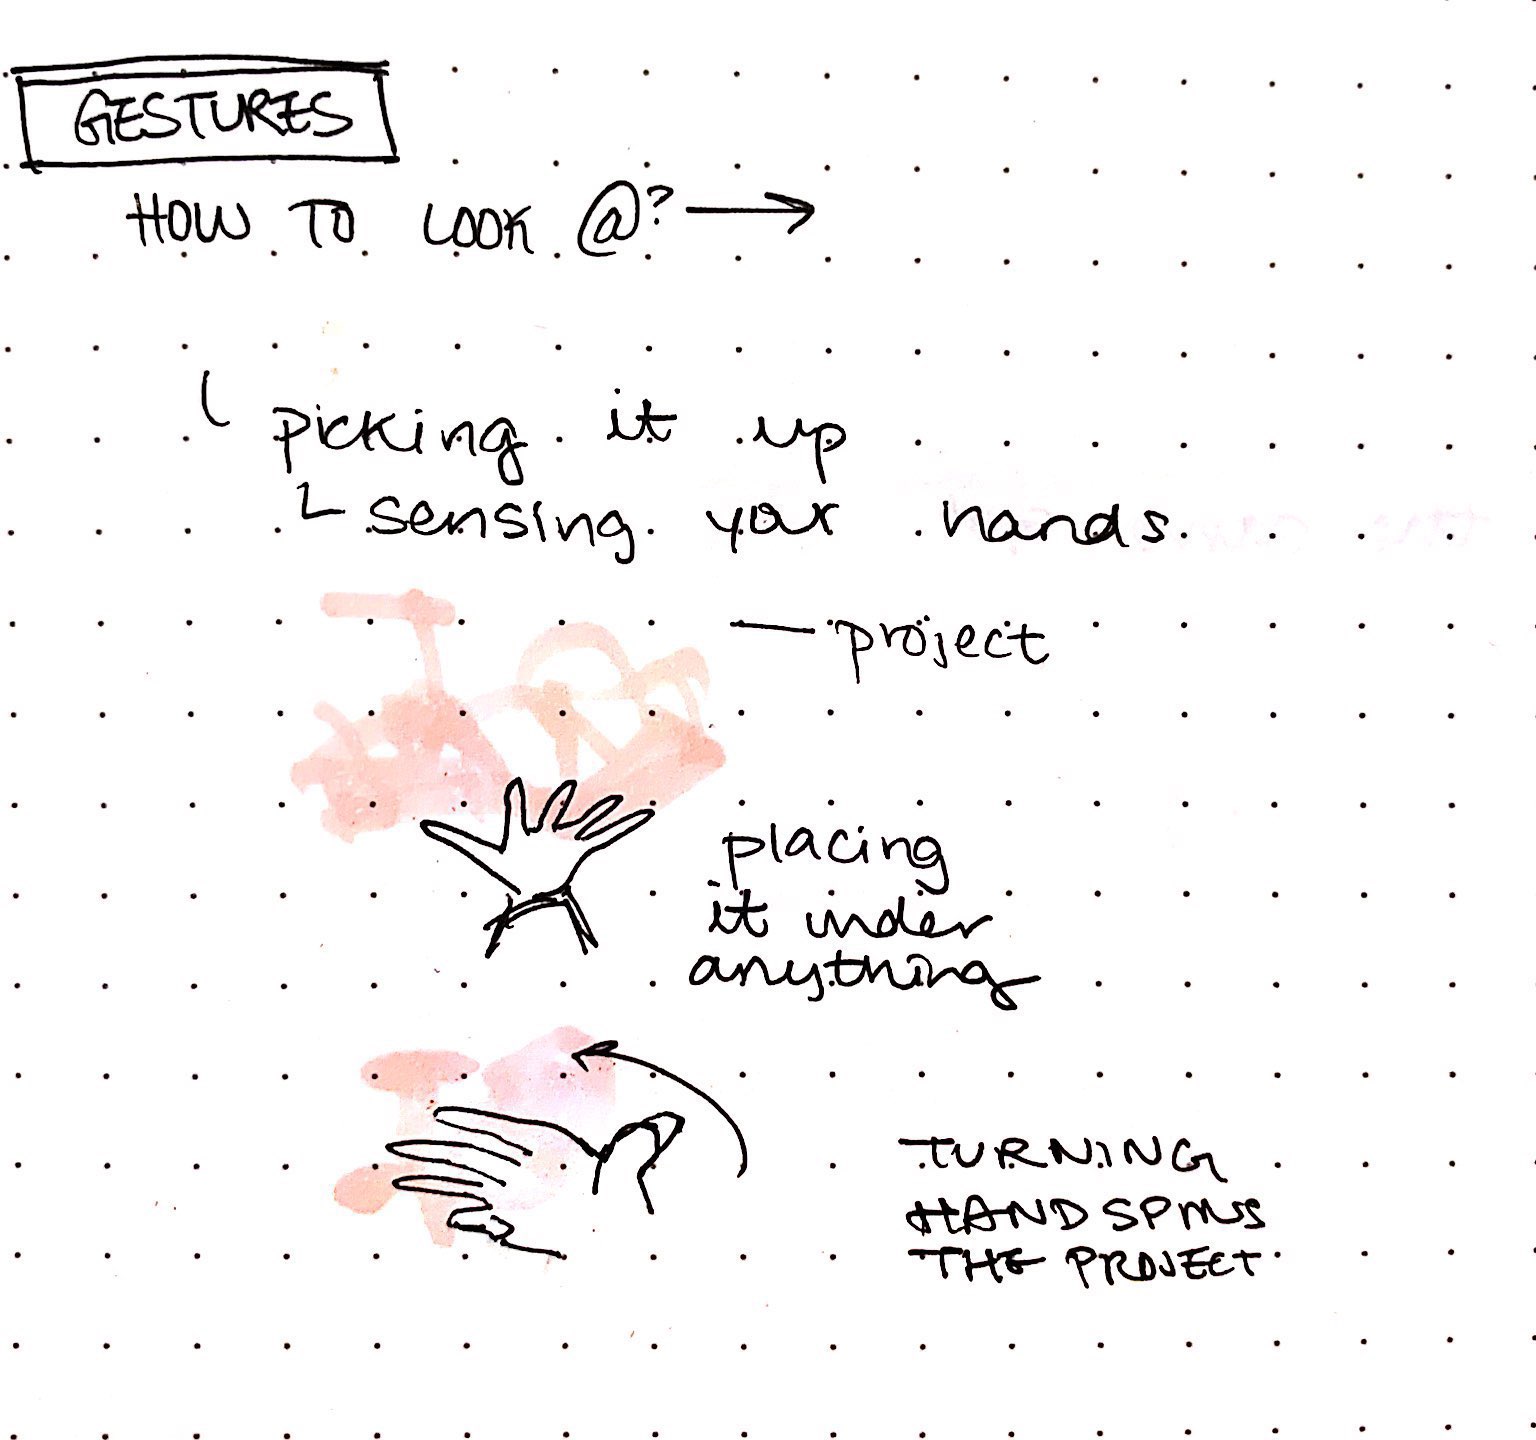 GESTURES
HOW TO LOOK @? →
picking it up
sensing your hands
— project
placing
it under
anything
TURNING
HAND SPINS
THE PROJECT